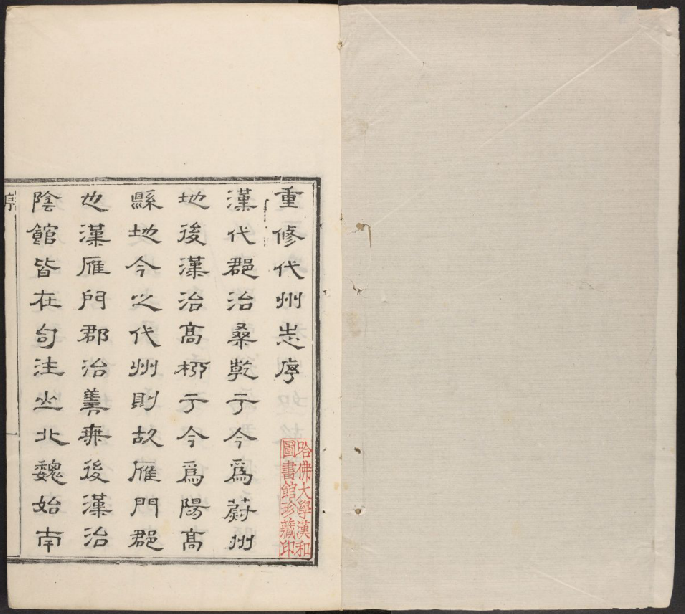 重修代州志序
漢代郡治桑乾于今爲蔚州
地後漢治高柳于今爲陽高
縣地今之代州則故雁門郡
也漢雁門郡治善無後漢治
陰館皆在句注山北魏始南
序
哈佛大學漢和
圖書館珍藏印